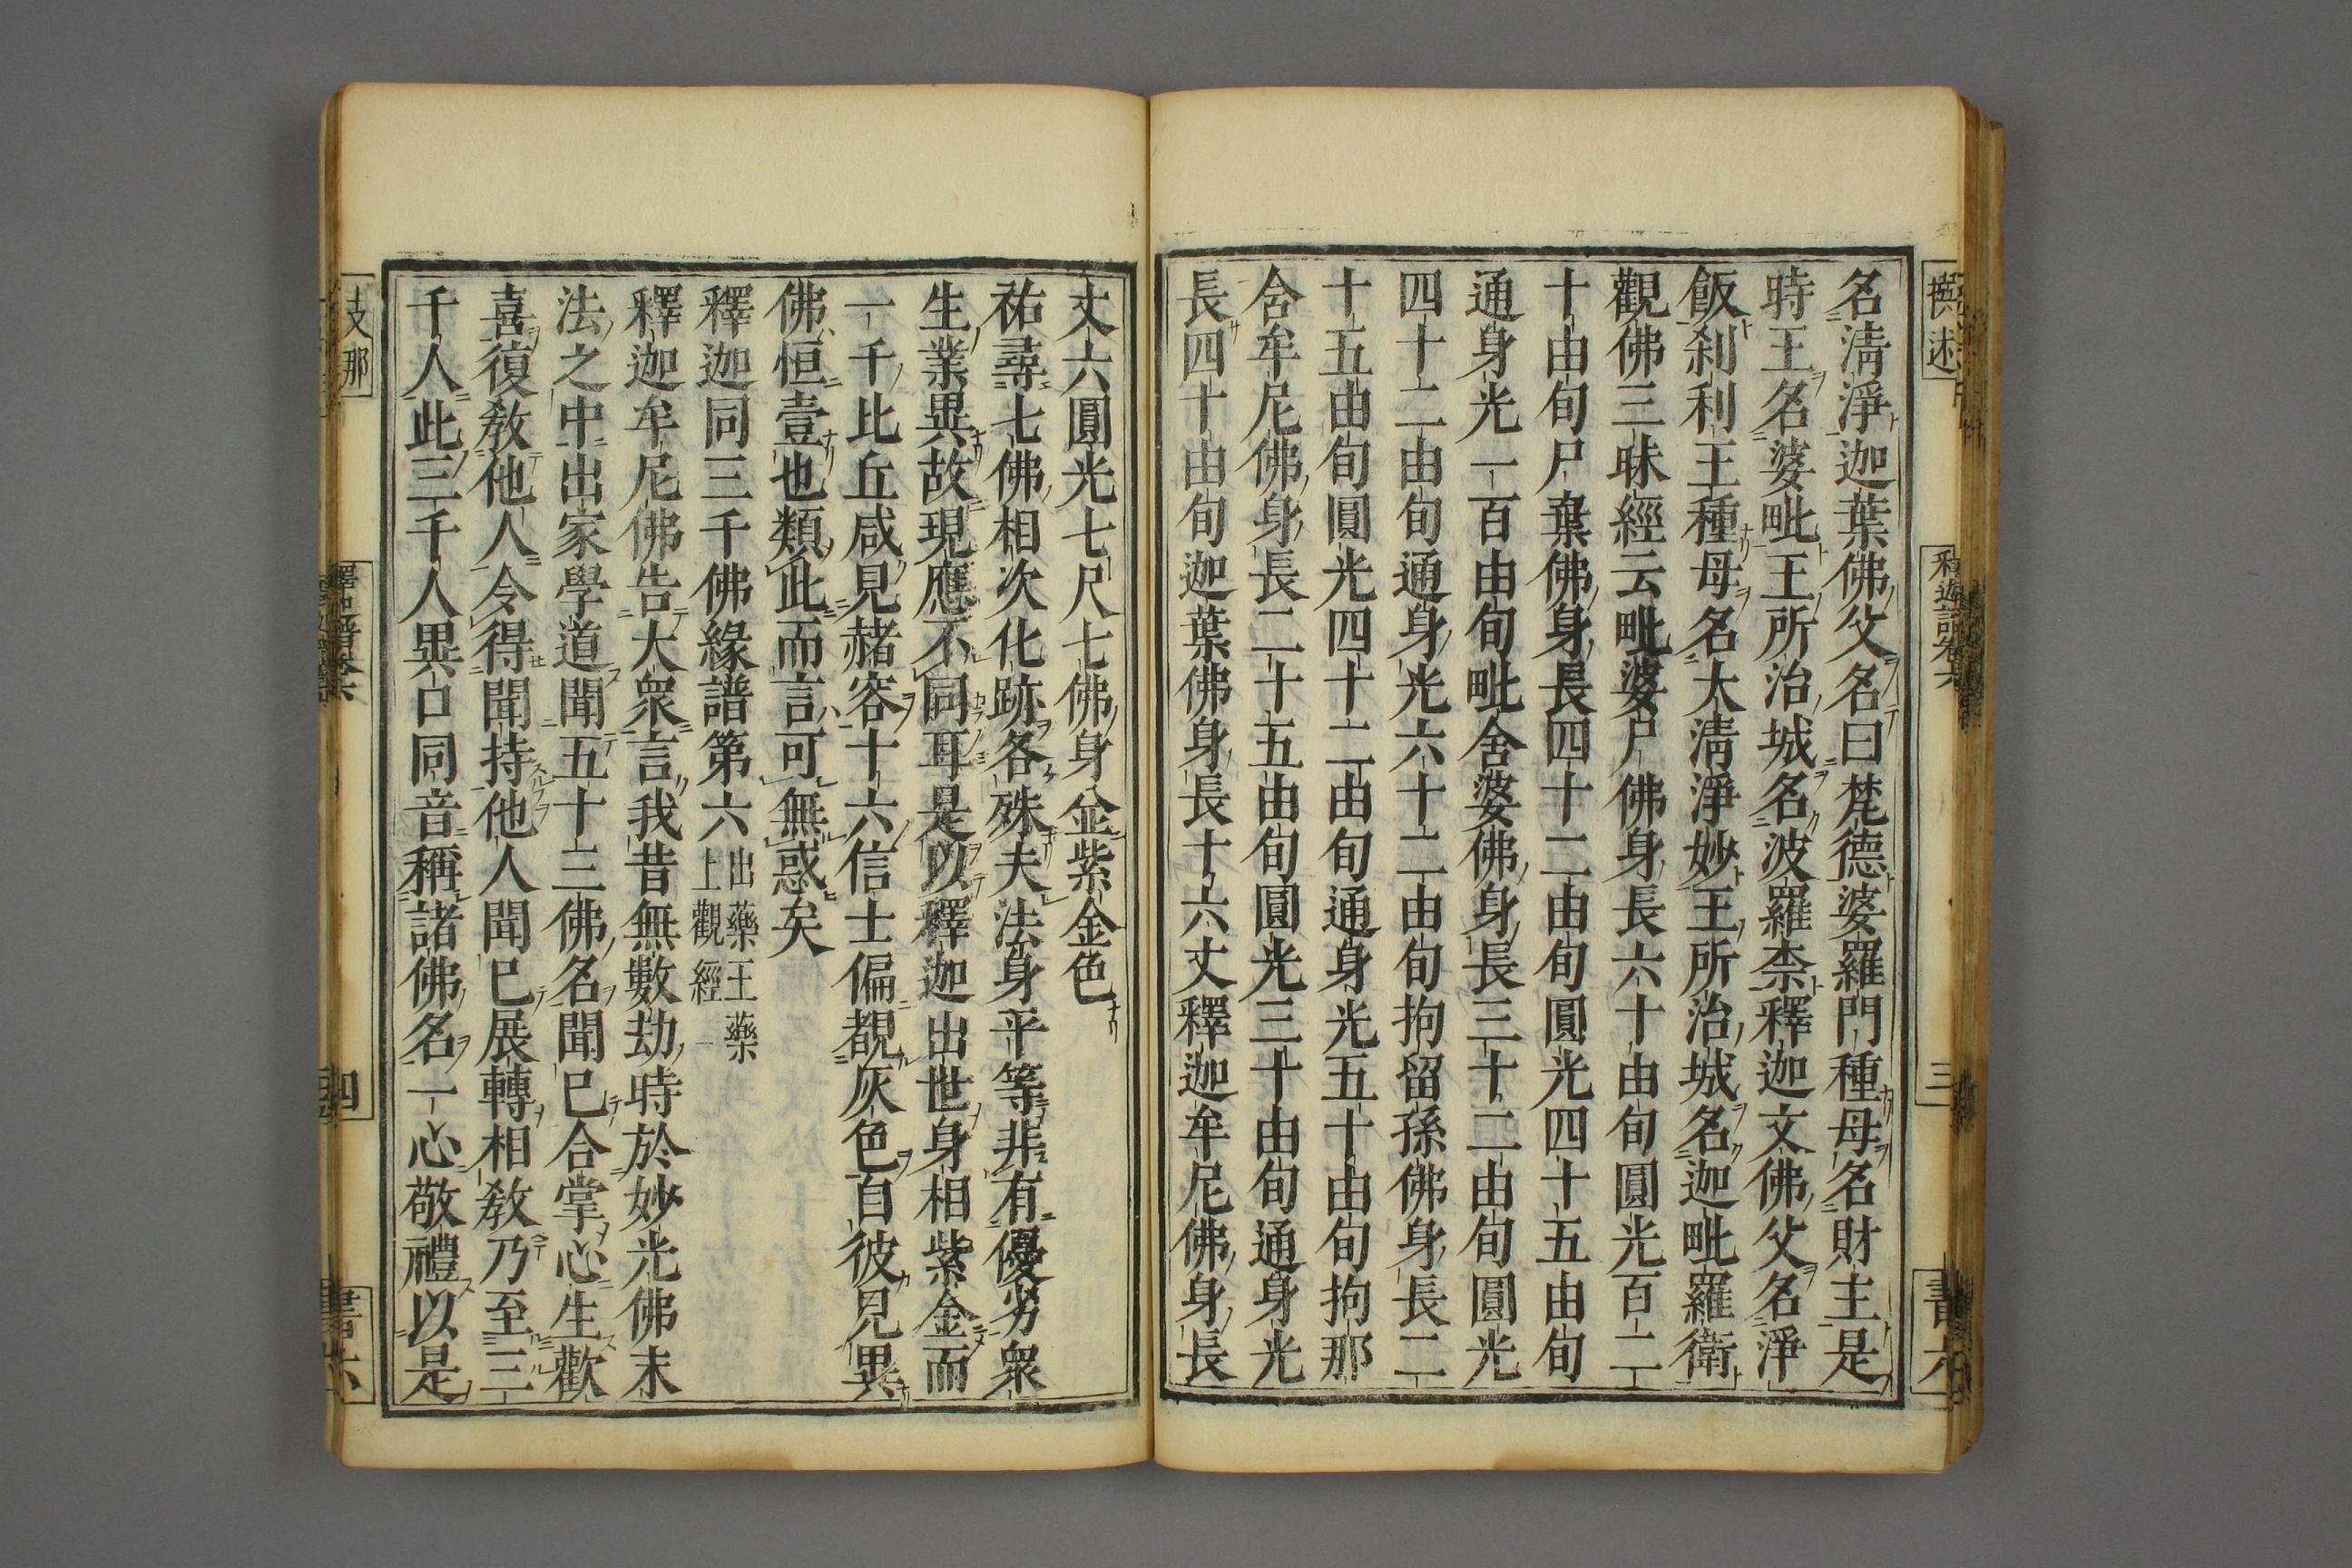 撰述
名清淨迦葉佛父名曰梵德婆羅門種母名財主是
時王名婆毗王所治城名波羅柰釋迦文佛父名淨
飯刹利王種母名大清淨妙王所治城名迦毗羅衛
觀佛三昧經云毗婆尸佛身長六十由旬圓光百二
十由旬尸棄佛身長四十二由旬圓光四十五由旬
通身光一百由旬毗舍婆佛身長三十二由旬圓光
四十二由旬通身光六十二由旬拘留孫佛身長二
十五由旬圓光四十二由旬通身光五十由旬拘那
含牟尼佛身長二十五由旬圓光三十由旬通身光
長四十由旬迦葉佛身長十六丈釋迦牟尼佛身長
丈六圓光七尺七佛身並紫金色
祐尋七佛相次化跡各殊夫法身平等非有優劣衆
生業異故現應不同耳是以釋迦出世身相紫金而
一千比丘咸見赭容十六信士偏覩灰色自彼見異
佛恒壹也類此而言可無惑矣
釋迦同三千佛緣譜第六出藥王藥
上觀經
釋迦牟尼佛告大衆言我昔無數劫時於妙光佛末
法之中出家學道聞五十三佛名聞已合掌心生歡
喜復教他人令得聞持他人聞已展轉相教乃至三
千人此三千人異口同音稱諸佛名一心敬禮以是
支那
四